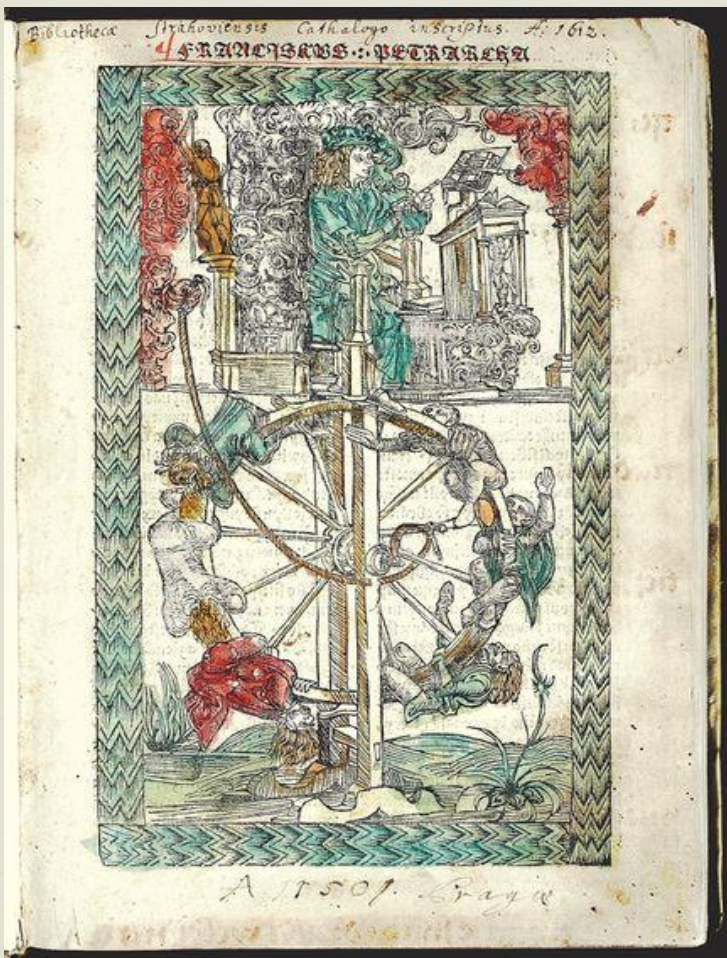 Bibliothecæ Strahoviensis Cathalogo inscriptus. Aº 1612.
FRANCISKVS : PETRARCHA
A 1501. Pragæ